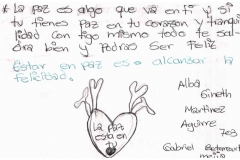 * La paz es algo que va en ti y si
tu tienes paz en tu corazon y tranqui
lidad con tigo mismo todo te sal-
dra bien y podras ser feliz
Estar en paz es alcanzar la
felicidad.
Alba
Gineth
Martinez
Aguirre
703
La paz
esta en
tu
Gabriel Betancourt
mejia